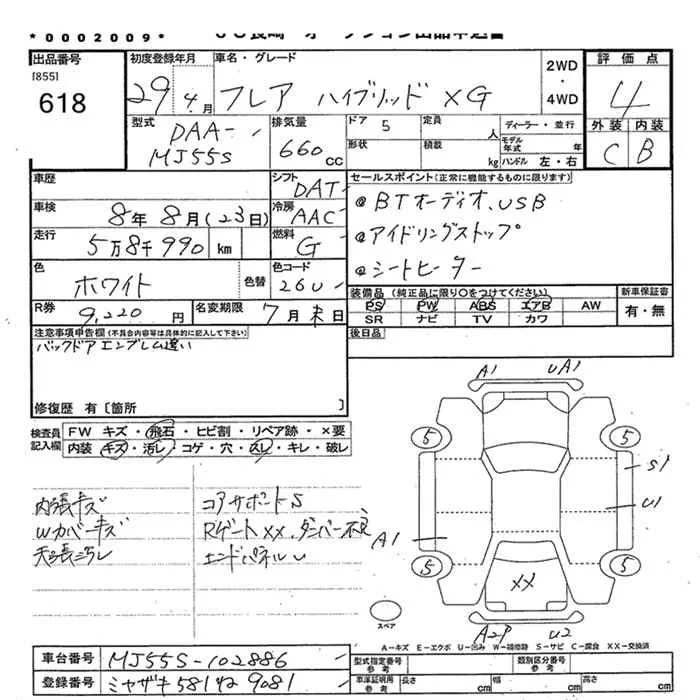 *0002009*
出品番号
[855]
618
初度登録年月
29年4月
車名・グレード
フレア ハイブリッド XG
2WD
・
4WD
評価点
4
型式
DAA-
MJ55S
排気量
660cc
ドア 5
定員 人
ディーラー・並行
モデル年式 年
形状
積載 kg
ハンドル 左・右
外装 内装
C B
車歴
シフト DAT
車検 8年8月(23日)
冷房 AAC
走行 5万8千990 km
燃料 G
色 ホワイト
色替
色コード 26U
R券 9,220円
名変期限 7月末日
セールスポイント(正常に機能するものに限ります)
@BTオーディオ、USB
@アイドリングストップ
@シートヒーター
装備品(純正品に限り○をつけてください)
新車保証書
PS PW ABS エアB AW
有・無
SR ナビ TV カワ
後日品
注意事項申告欄(不具合内容等は具体的に記入して下さい)
バックドアエンブレム違い
修復歴 有〔箇所 〕
検査員記入欄
FW キズ・飛石・ヒビ割・リペア跡・×要
内装 キズ・汚レ・コゲ・穴・スレ・キレ・破レ
内張キズ
Wカバーキズ
天張汚レ
コアサポートS
RゲートXX、ダンパー不良
エンドパネルU
A1 UA1
5 5
S1
U1
A1
5 5
XX
A2P U2
スペア
A-キズ E-エクボ U-凹み W-補修跡 S-サビ C-腐食 XX-交換済
車台番号 MJ55S-102886
登録番号 ミヤザキ581ね9081
型式指定番号 参考
類別区分番号 参考
車庫証明用 参考
長さ cm
幅 cm
高さ cm